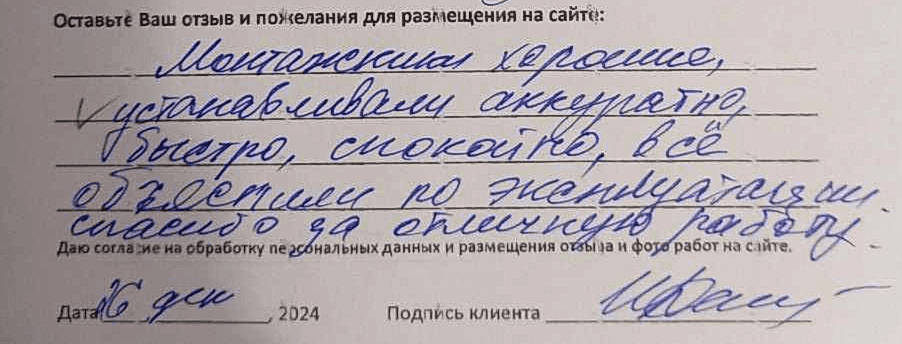 Оставьте Ваш отзыв и пожелания для размещения на сайте:
Монтажники хорошие,
устанавливали аккуратно,
быстро, спокойно, всё
объяснили по эксплуатации.
спасибо за отличную работу.
Даю согласие на обработку персональных данных и размещения отзыва и фото работ на сайте.
Дата 16 дек, 2024 Подпись клиента